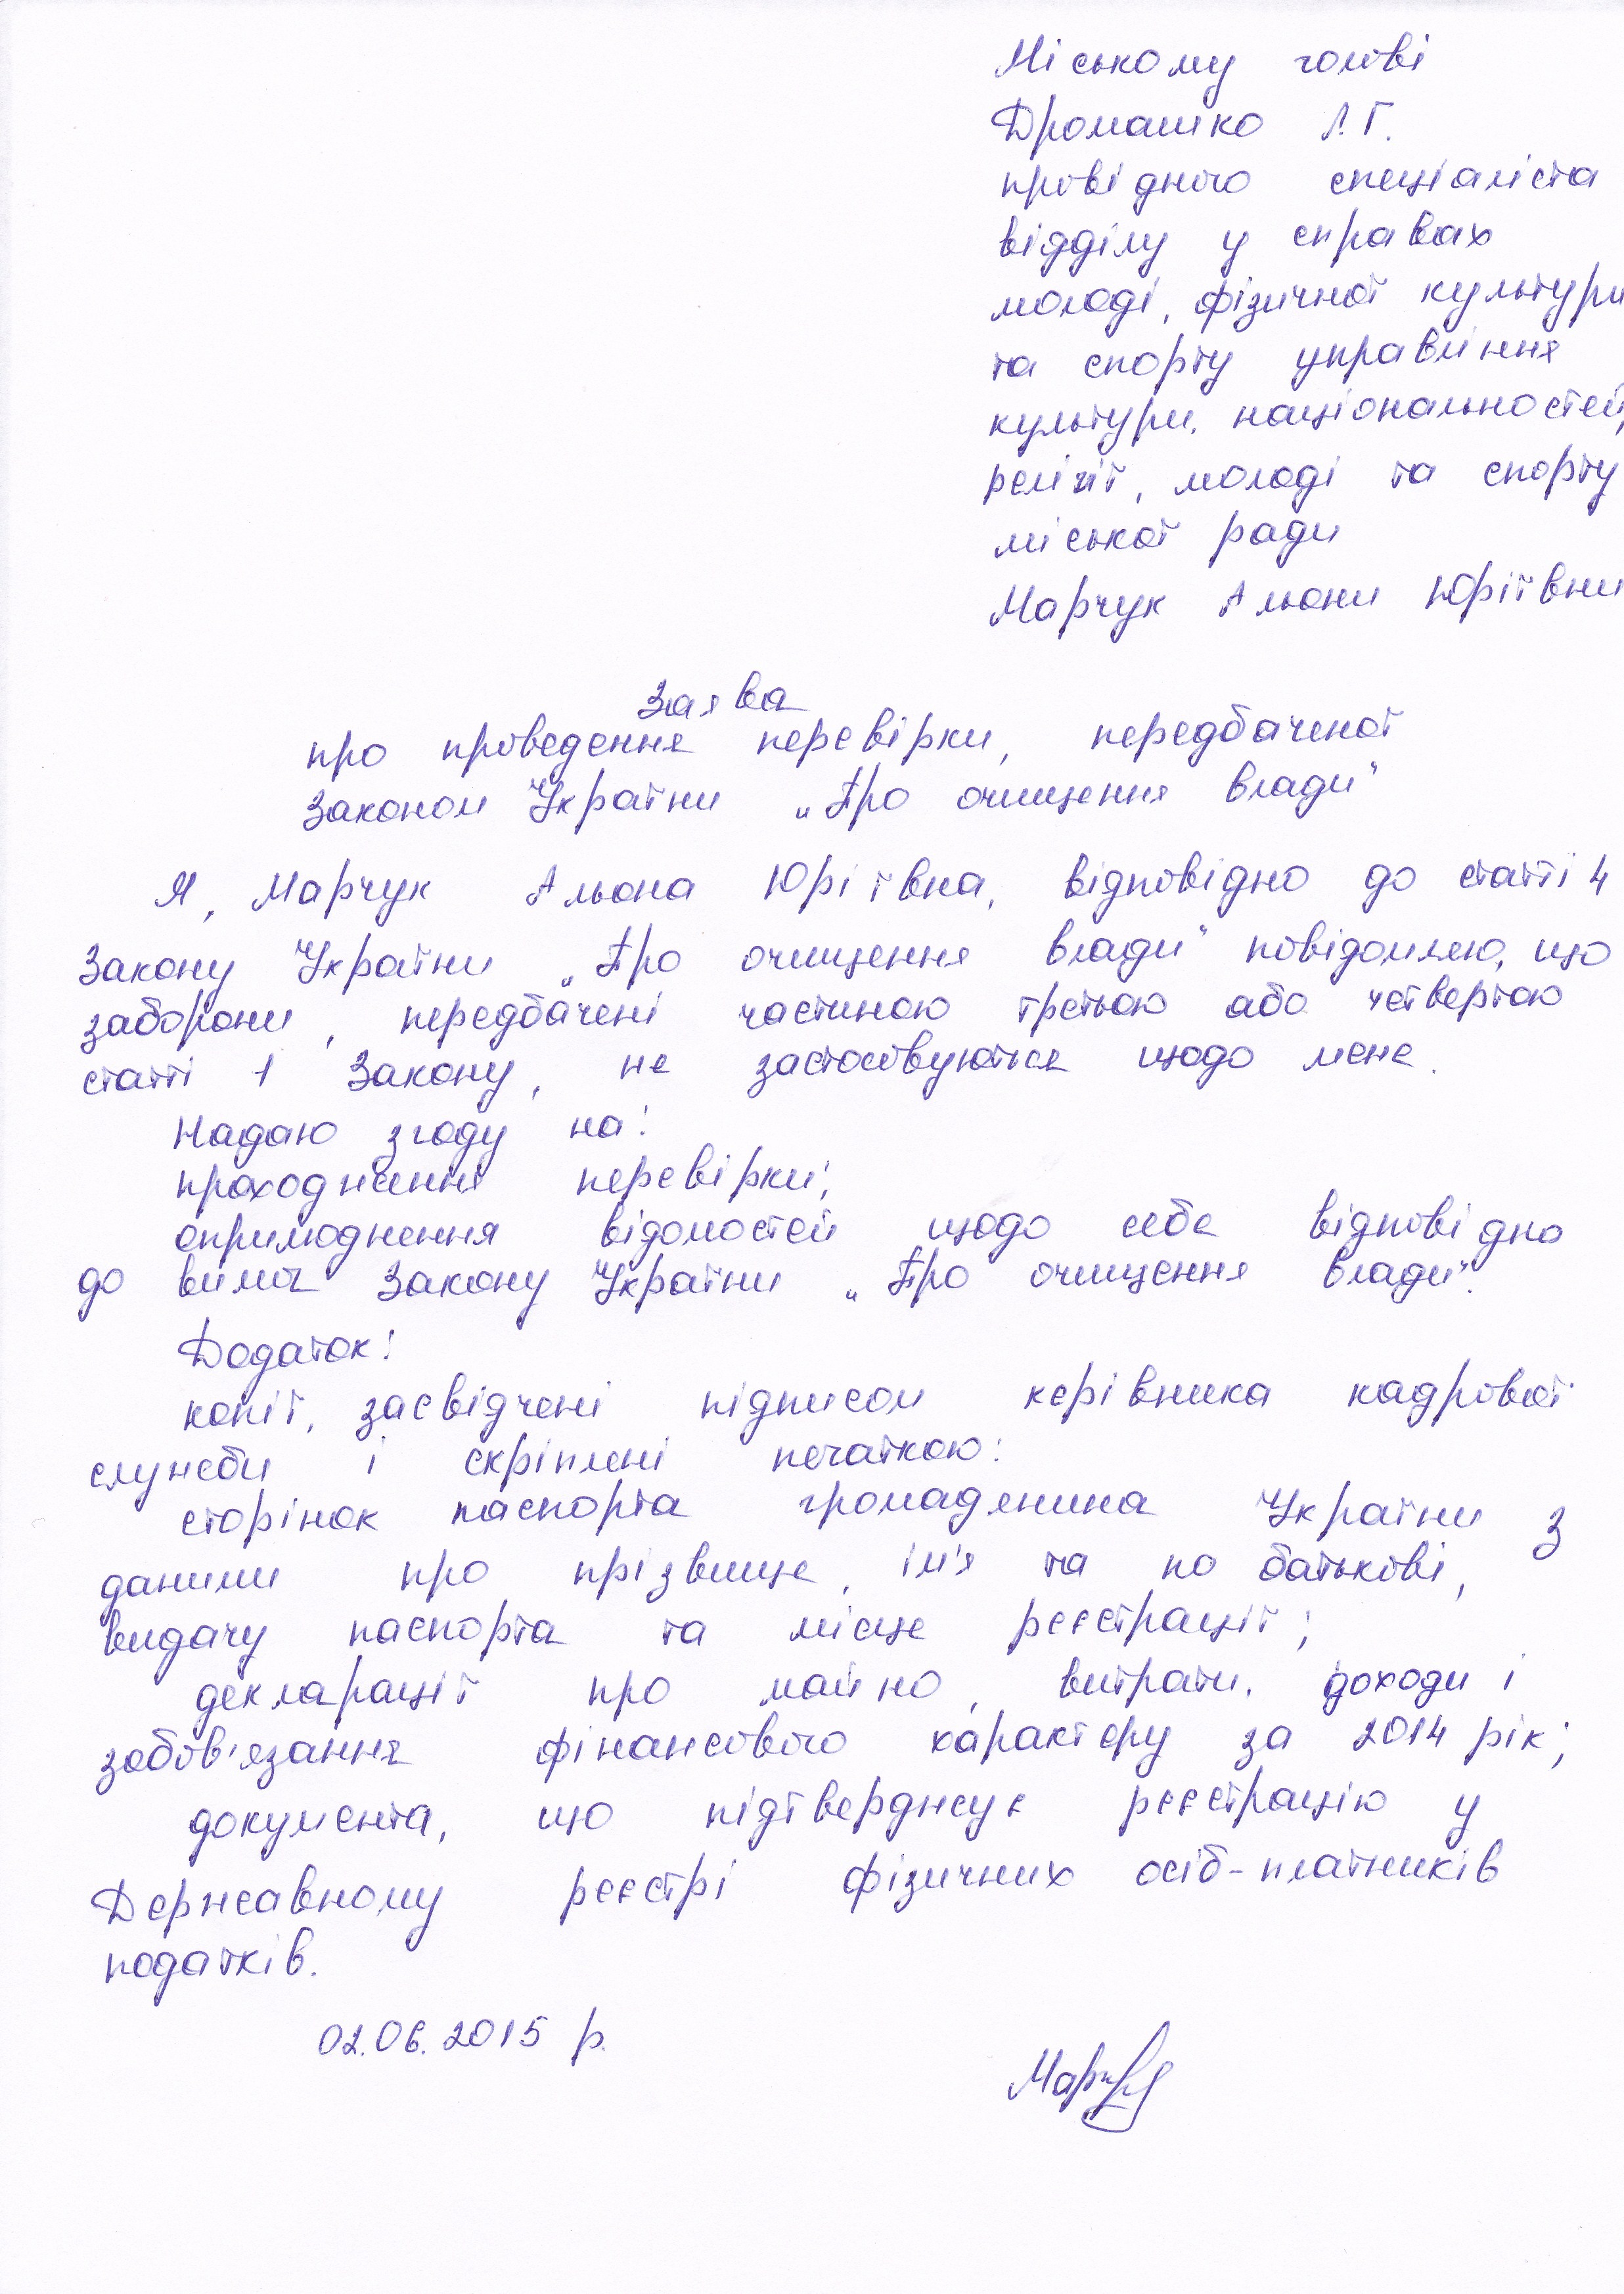 Міському голові
Дромашко Л.Г.
провідного спеціаліста
відділу у справах
молоді, фізичної культури
та спорту управління
культури, національностей,
релігії, молоді та спорту
міської ради
Марчук Альони Юріївни
Заява
про проведення перевірки, передбаченої
Законом України „Про очищення влади"
Я, Марчук Альона Юріївна, відповідно до статті 4
Закону України „Про очищення влади" повідомляю, що
заборони, передбачені частиною третьою або четвертою
статті 1 Закону, не застосовуються щодо мене.
Надаю згоду на:
проходження перевірки;
оприлюднення відомостей щодо себе відповідно
до вимог Закону України „Про очищення влади".
Додаток:
копії, засвідчені підписом керівника кадрової
служби і скріплені печаткою:
сторінок паспорта громадянина України з
даними про прізвище, ім'я та по батькові,
видачу паспорта та місце реєстрації;
декларації про майно, витрати, доходи і
зобов'язання фінансового характеру за 2014 рік;
документа, що підтверджує реєстрацію у
Державному реєстрі фізичних осіб-платників
податків.
02.06.2015 р.